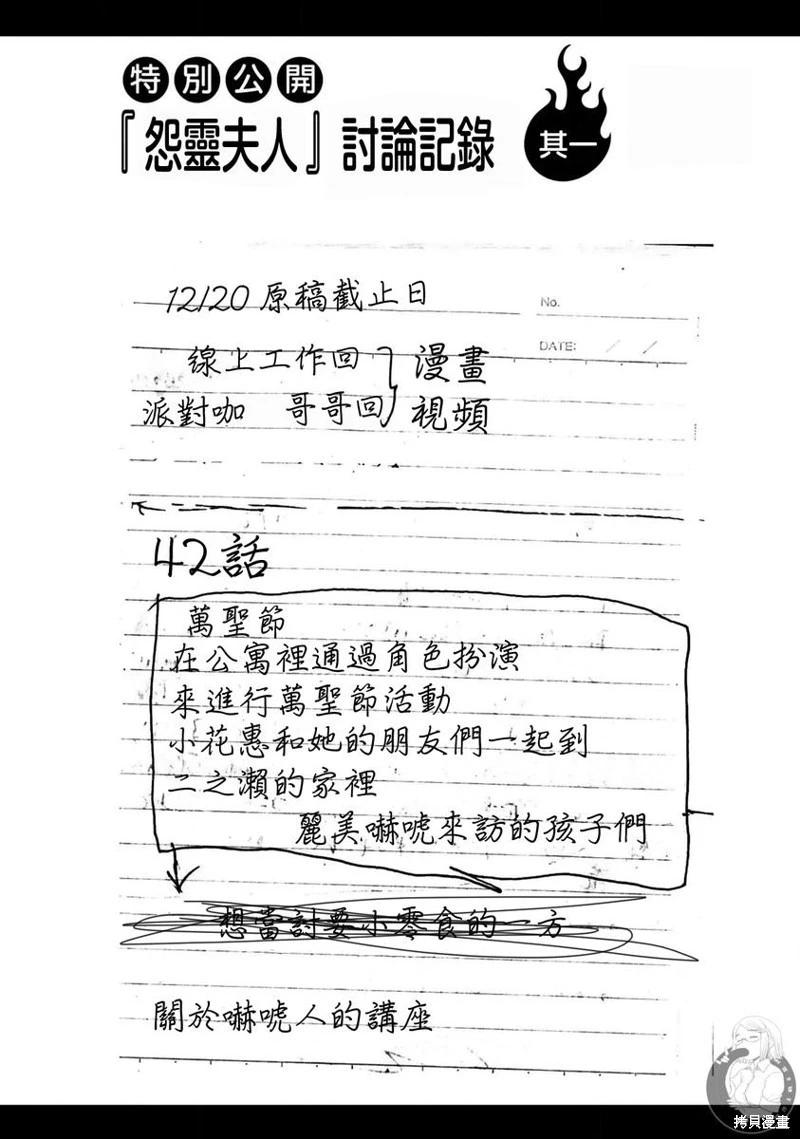 特別公開
『怨靈夫人』討論記錄
其一
12/20 原稿截止日
No.
DATE: / /
線上工作回
派對咖 哥哥回
漫畫
視頻
42話
萬聖節
在公寓裡通過角色扮演
來進行萬聖節活動
小花惠和她的朋友們一起到
二之瀨的家裡
麗美嚇唬來訪的孩子們
想當討要小零食的一方
關於嚇唬人的講座
拷貝漫畫